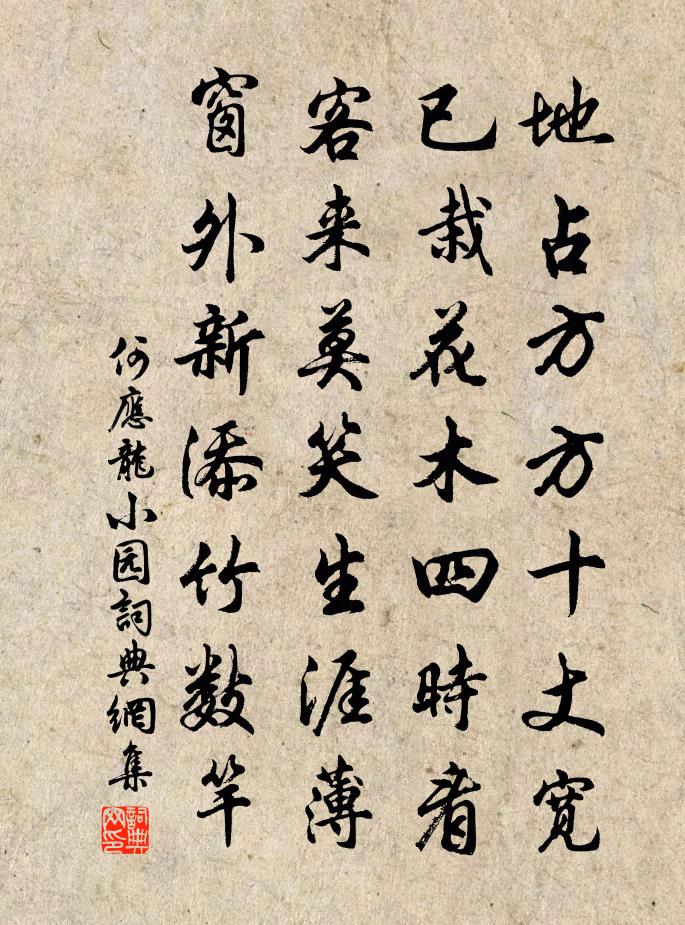 地占方方十丈寬
已栽花木四時看
客来莫笑生涯薄
窗外新添竹數竿
何應龍小园詞典網集
詞典
网印